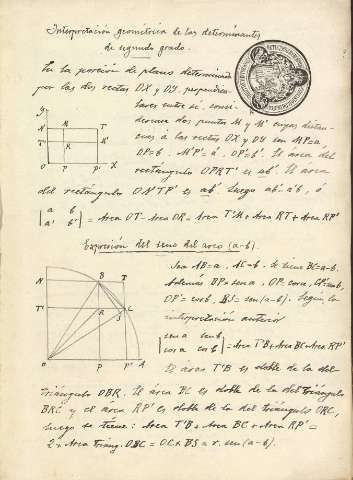 Interpretación geométrica de los determinantes
de segundo grado.
En la porción de plano determinada
por las dos rectas OX y OY, perpendicu-
lares entre sí, consi-
deremos dos puntos M y M' cuyas distan-
cias á las rectas OX y OY son MP=a,
OP=b, M'P'=a', OP'=b'. El área del
rectángulo OPRT' es a'b. El área
del rectángulo ONTP' es ab'. Luego ab'-a'b, ó
| a b |
| a' b' | = Area OT - Area OR = Area T'M + Area RT + Area RP'
Y
N M T
T' R M'
O P P' X
Expresión del seno del arco (a-b).
Sean AB=a, AC=b. Se tiene BC=a-b.
Además BP=sen a, OP=cos a, CP'=sen b,
OP'=cos b, BS=sen(a-b). Según la
interpretación anterior
| sen a sen b |
| cos a cos b | = Area T'B + Area BC + Area RP'
El área T'B es doble de la del
triángulo OBR. El área BC es doble de la del triángulo
BRC y el área RP' es doble de la del triángulo ORC,
luego se tiene: Area T'B + Area BC + Area RP' =
2 × Area triang. OBC = OC × BS = r. sen (a-b).
N B T
T' R S C
O P P' A